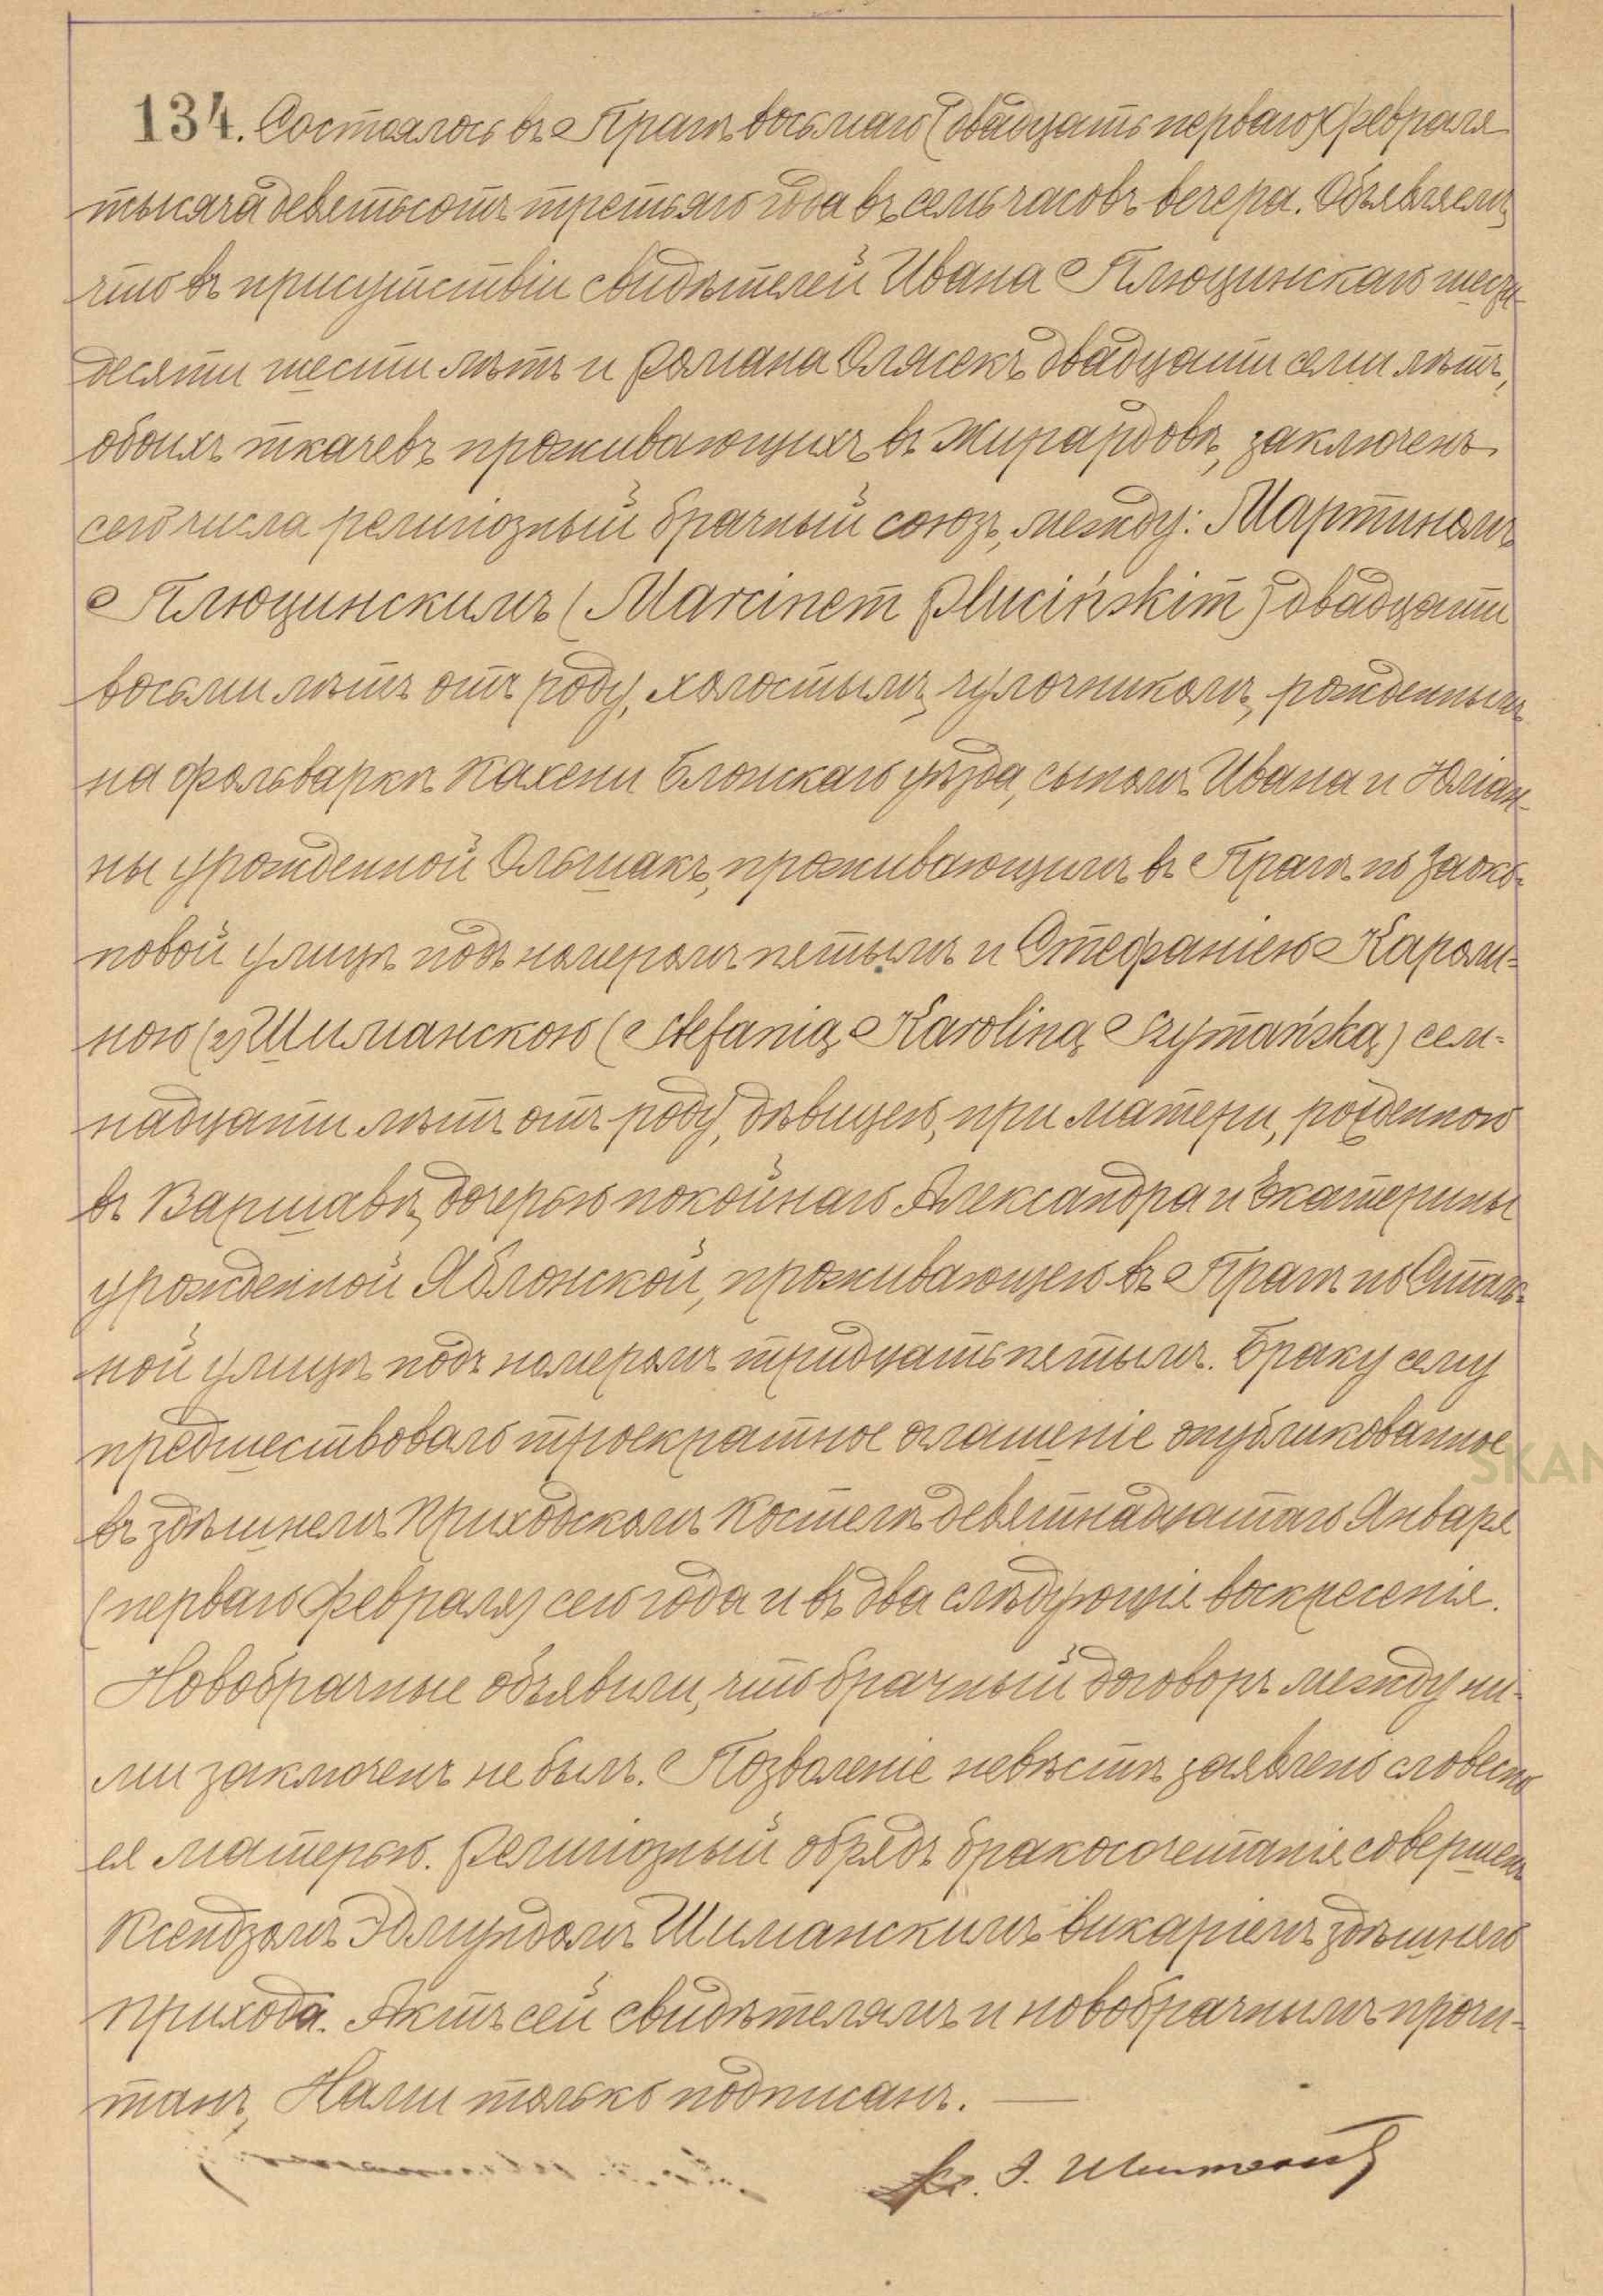 134. Состоялось въ Прагѣ восьмаго (двадцать перваго) Февраля
тысяча девятьсотъ третьяго года въ семь часовъ вечера. Объявляемъ,
что въ присутствіи свидѣтелей Ивана Плюцинскаго шести-
десяти шести лѣтъ и Романа Олясекъ двадцати семи лѣтъ,
обоихъ ткачевъ проживающихъ въ Жирардовѣ, заключенъ
сего числа религіозный брачный союзъ, между: Мартиномъ
Плюцинскимъ (Marcinem Plucińskim) двадцати
восьми лѣтъ отъ роду, холостымъ, чулочникомъ, рожденнымъ
на фольваркѣ Кахени Блонскаго уѣзда, сыномъ Ивана и Юліан-
ны урожденной Ольшакъ, проживающимъ въ Прагѣ по Заоко-
повой улицѣ подъ номеромъ пятымъ и Стефаніею Кароли-
ною (2) Шиманскою (Stefanią Karoliną Szymańską) сем-
надцати лѣтъ отъ роду, дѣвицею, при матери, рожденною
въ Варшавѣ, дочерью покойнаго Александра и Екатерины
урожденной Яблонской, проживающею въ Прагѣ по Сталь-
ной улицѣ подъ номеромъ тридцать пятымъ. Браку сему
предшествовало троекратное оглашеніе опубликованное
въ здѣшнемъ приходскомъ костелѣ девятнадцатаго Января
(перваго Февраля) сего года и въ два слѣдующія воскресенія.
Новобрачные объявили, что брачный договоръ между ни-
ми заключенъ не былъ. Позволеніе невѣстѣ заявлено словесно
ея матерью. Религіозный обрядъ бракосочетанія совершенъ
Ксендзомъ Эдмундомъ Шиманскимъ викаріемъ здѣшняго
прихода. Актъ сей свидѣтелямъ и новобрачнымъ прочи-
танъ, Нами только подписанъ. —
Кс. Э. Шиманскій
SKAN